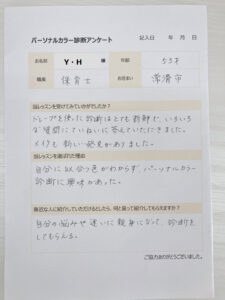 パーソナルカラー診断アンケート
記入日 年 月 日
お名前 Y・H 様 年齢 53才
職業 保育士 お住まい 常滑市
当レッスンを受けてみていかがでしたか？
ドレープを使った診断はとても新鮮で、いろいろ
な質問にていねいに答えていただきました。
メイクも新しい発見がありました。
当レッスンを選ばれた理由
自分に似合う色がわからず、パーソナルカラー
診断に興味があった。
身近な人に紹介していただけるとしたら、何と言って紹介してもらえますか？
自分の悩みや迷いに親身になって、診断を
してもらえる。
ご協力ありがとうございました。